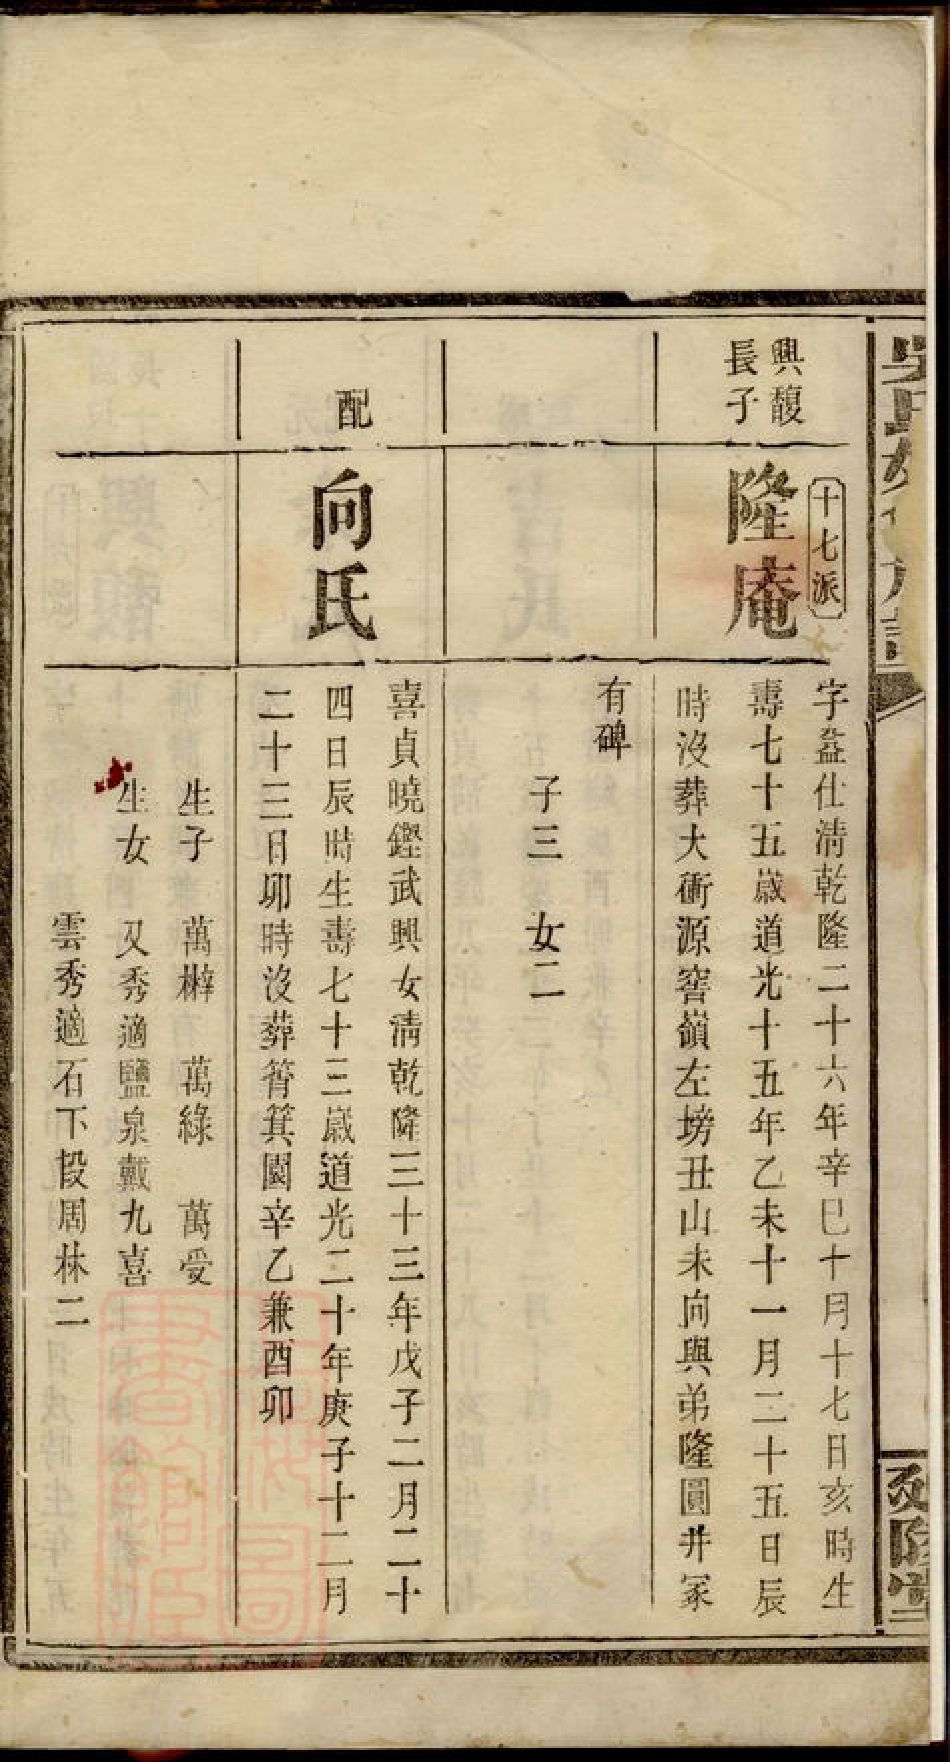 興馥
長子
十七派
隆庵
字益仕清乾隆二十六年辛巳十月十七日亥時生
壽七十五歲道光十五年乙未十一月二十五日辰
時沒葬大衝源窖嶺左塝丑山未向與弟隆圓井冢
有碑
子三　女二
配
向氏
喜貞曉鏗武興女清乾隆三十三年戊子二月二十
四日辰時生壽七十三歲道光二十年庚子十二月
二十三日卯時沒葬筲箕園辛乙兼酉卯
生子　萬檊　萬綠　萬受
生女　又秀適鹽泉戴九喜
雲秀適石下段周林二